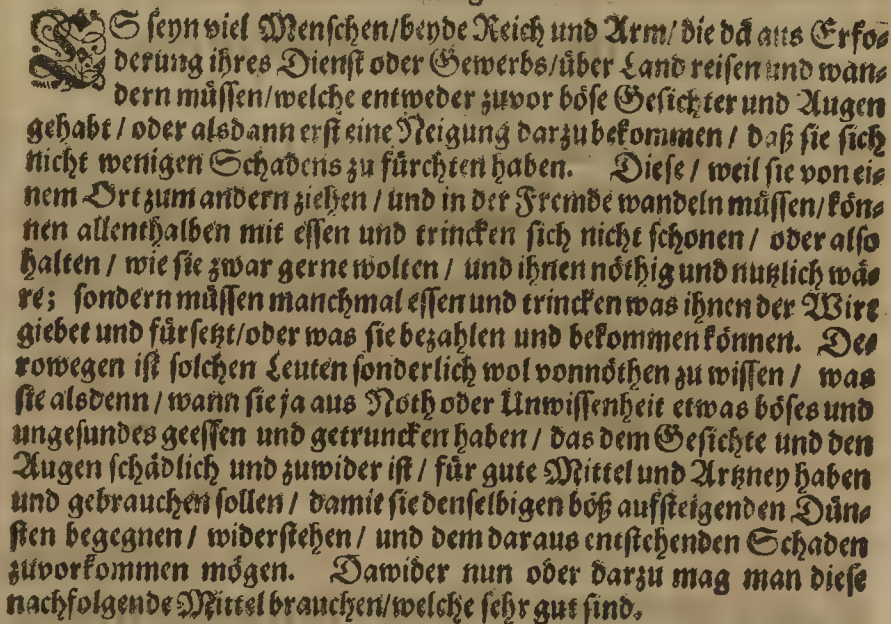 ES seyn viel Menschen/beyde Reich und Arm/ die da aus Erfo-
derung ihres Dienst oder Gewerbs/über Land reisen und wan-
dern müssen/welche entweder zuvor böse Gesichter und Augen
gehabt / oder alsdann erst eine Neigung darzu bekommen / daß sie sich
nicht wenigen Schadens zu fürchten haben. Diese / weil sie von ei-
nem Ort zum andern ziehen / und in der Fremde wandeln müssen/kön-
nen allenthalben mit essen und trincken sich nicht schonen / oder also
halten / wie sie zwar gerne wolten / und ihnen nöthig und nutzlich wä-
re; sondern müssen manchmal essen und trincken was ihnen der Wirt
giebet und fürsetzt/oder was sie bezahlen und bekommen können. De-
rowegen ist solchen Leuten sonderlich wol vonnöthen zu wissen / was
sie alsdenn / wann sie ja aus Noth oder Unwissenheit etwas böses und
ungesundes geessen und getruncken haben / das dem Gesichte und den
Augen schädlich und zuwider ist / für gute Mittel und Artzney haben
und gebrauchen sollen / damit sie denselbigen böß aufsteigenden Dün-
sten begegnen / widerstehen / und dem daraus entstehenden Schaden
zuvorkommen mögen. Dawider nun oder darzu mag man diese
nachfolgende Mittel brauchen/welche sehr gut sind.